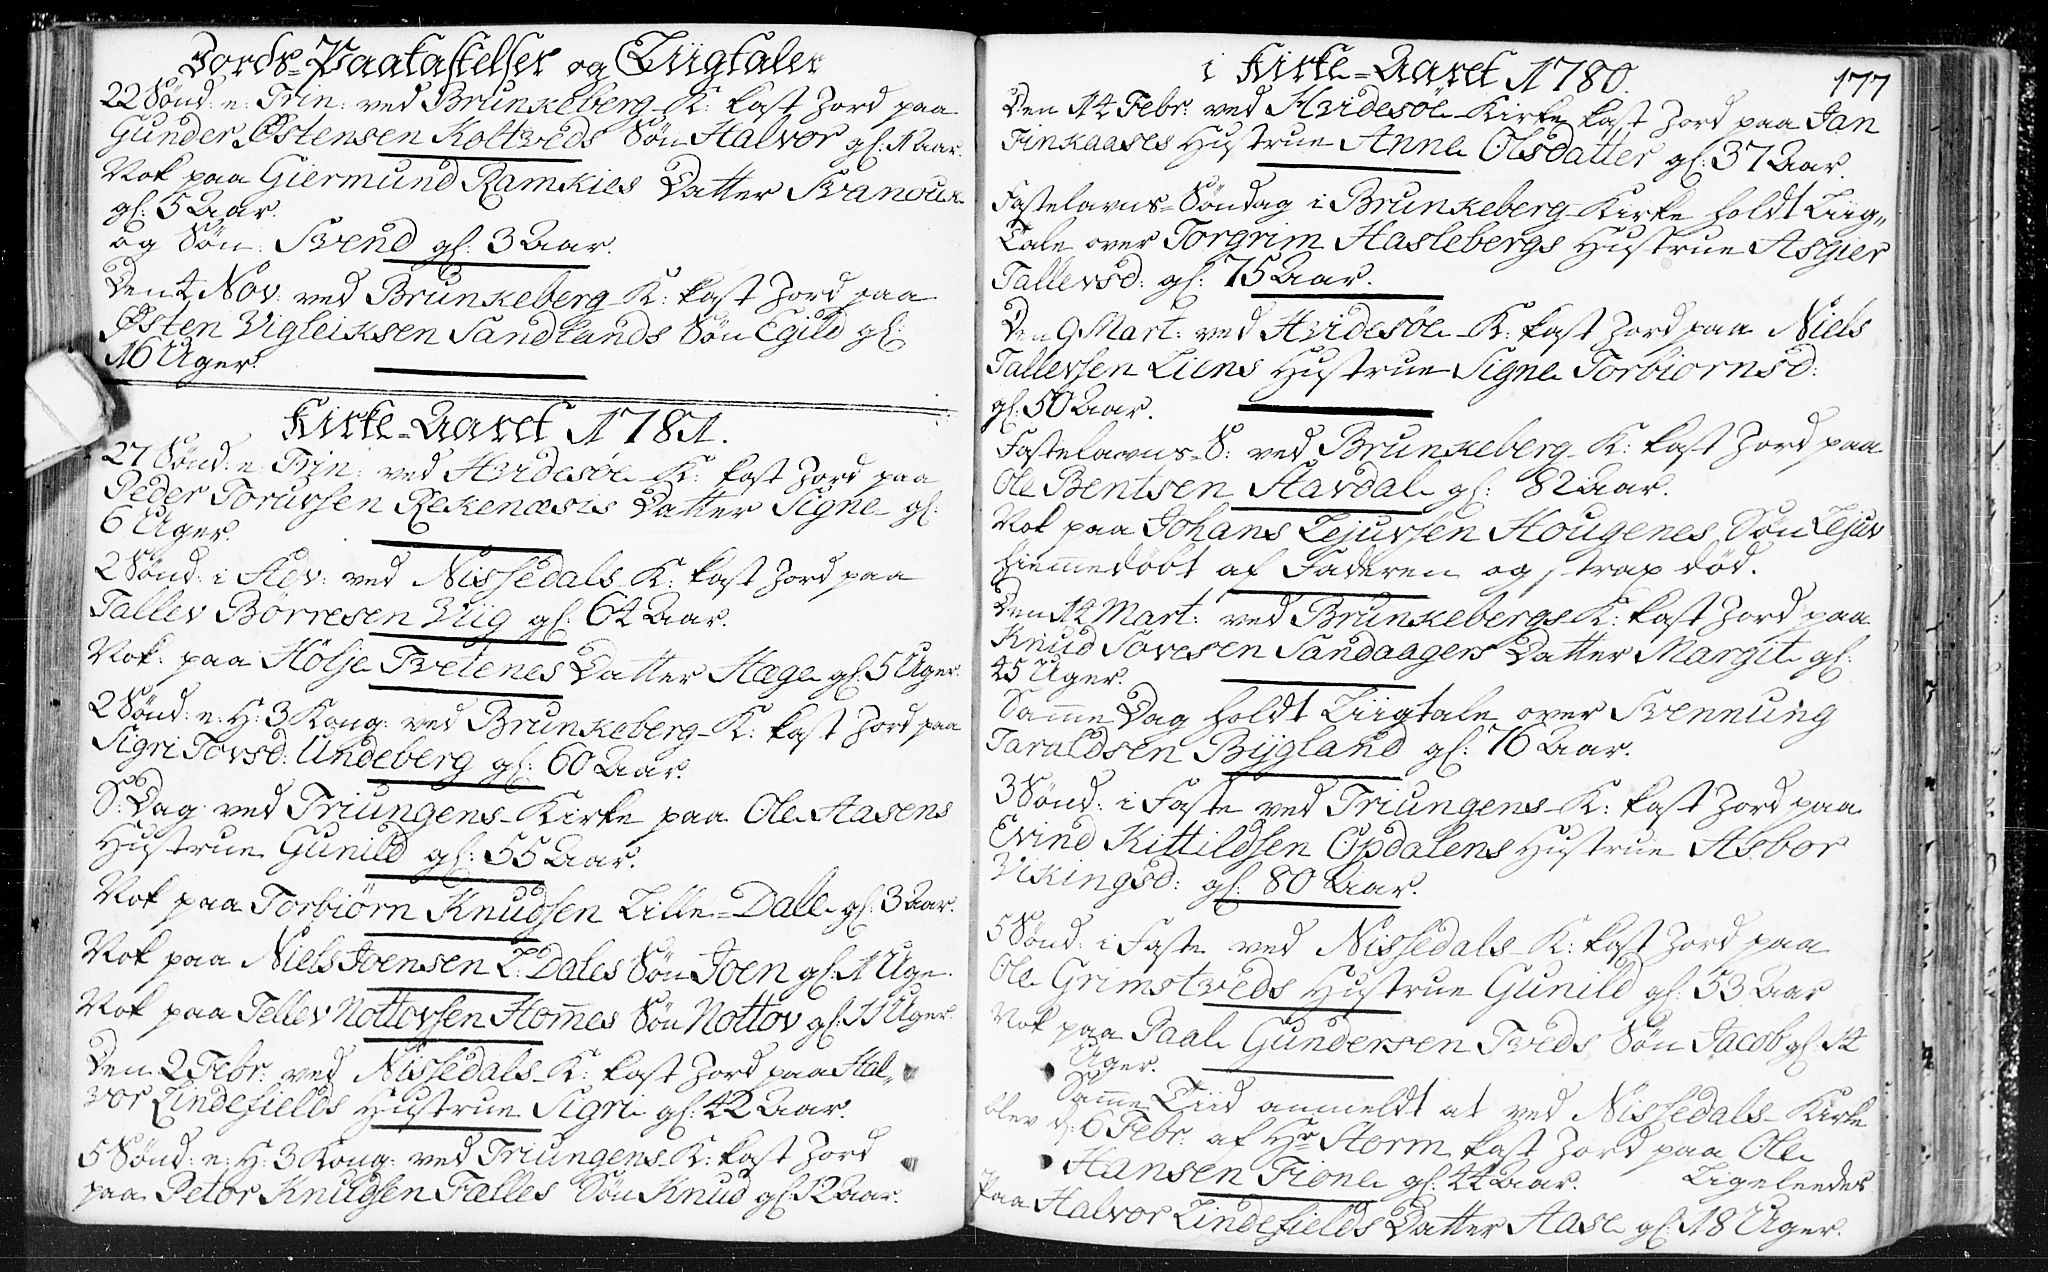 Jords-Paakastelser og Liigtaler
22 Sønd: e: Trin: ved Brunkeberg K: kast Jord paa
Gunder Østensen Koltveds Søn Halvor gl: 1 Aar.
Nok paa Giermund Ramkies Datter Svanoug
gl: 5 Aar.
og Søn: Svend gl: 3 Aar.
Den 4 Nov: ved Brunkeberg K: kast Jord paa
Østen Vigleiksen Sandlands Søn Egild gl:
16 Uger.
Kirke-Aaret 1781.
27 Sønd: e: Trin: ved Hvidesøe K: kast Jord paa
Peder Toruvsen Rekenæsis Datter Signe gl:
6 Uger.
2 Sønd: i Adv: ved Nissedals K: kast Jord paa
Tallev Børresen Viig gl: 64 Aar.
Nok: paa Hølje Tvetenes Datter Hæge gl: 5 Uger.
2 Sønd: e: H: 3 Kong: ved Brunkeberg K: kast Jord paa
Sigri Tovsd: Undeberg gl: 60 Aar.
S: Dag ved Triungens Kirke paa Ole Aasens
Hustrue Gunild gl: 55 Aar.
Nok paa Torbiørn Knudsen Lille-Dale gl: 3 Aar.
Nok paa Niels Joensen L: Dales Søn Joen gl: 1 Uge.
Nok paa Tellev Nottovsen Hom̄es Søn Nottov gl: 11 Uger.
Den 2 Febr: ved Nissedals K: kast Jord paa Hal-
vor Lindefields Hustrue Sigri gl: 42 Aar.
5 Sønd: e: H: 3 Kong: ved Triungens K: kast Jord
paa Petor Knudsen Fælles Søn Knud gl: 12 Aar.
i Kirke-Aaret 1780.
177
Den 14 Febr: ved Hvidesøe Kirke kast Jord paa Jan
Finkaases Hustrue Anne Olsdatter gl: 37 Aar.
Fastelavns-Søndag i Brunkeberg Kirke holdt Liig-
Tale over Torgrim Haslebergs Hustrue Asgier
Tallevsd: gl: 75 Aar.
Den 9 Mart: ved Hvidesøe K: kast Jord paa Niels
Tallevsen Liens Hustrue Signe Torbiørnsd:
gl: 50 Aar.
Fastelavns-S: ved Brunkeberg K: kast Jord paa
Ole Bentsen Havdal gl: 82 Aar.
Nok paa Johans Lejuvsen Hougenes Søn Lejuv
hiem̄edøbt af Faderen og strax død.
Den 14 Mart: ved Brunkebergs K: kast Jord paa
Knud Sovesen Sandaagers Datter Margit gl:
45 Uger.
Sam̄e Dag holdt Liigtale over Svennung
Taraldsen Bÿgland gl: 76 Aar.
3 Sønd: i Faste ved Triungens K: kast Jord paa
Evind Kittildsen Opdalens Hustrue Asbor
Vikingsd: gl: 80 Aar.
5 Sønd: i Faste ved Nissedals K: kast Jord paa
Ole Grimstveds Hustrue Gunild gl: 53 Aar
Nok paa Paal Gundersen Tveds Søn Jacob gl: 14
Uger.
Sam̄e Tiid anmeldt at ved Nissedals Kirke
blev d: 6 Febr: af Hr Storm kast Jord paa Ole
Hansen Fione gl: 44 Aar. Ligeleedes
paa Halvor Lindefields Datter Aase gl: 18 Uger.